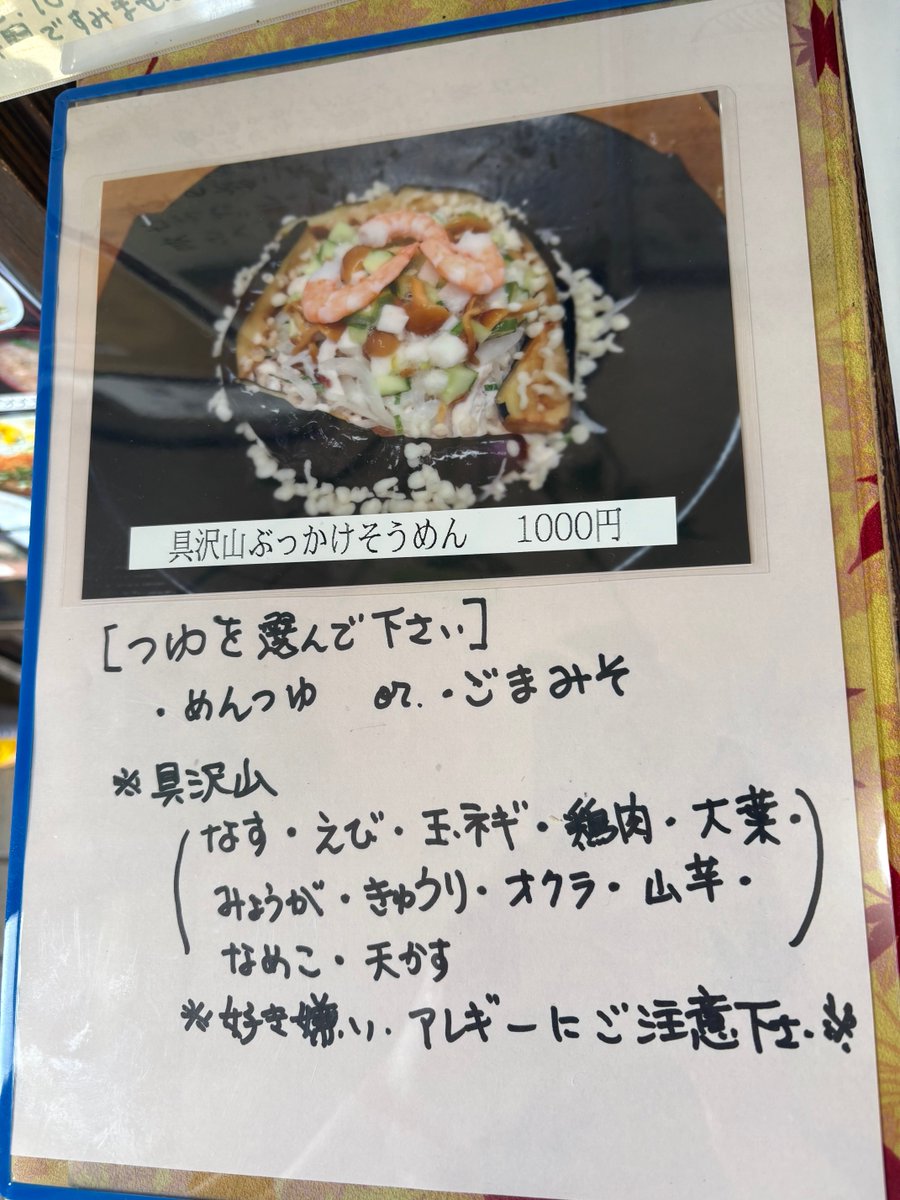 ですみませ
具沢山ぶっかけそうめん 1000円
[つゆを選んで下さい]
・めんつゆ or. ・ごまみそ
※具沢山
(なす・えび・玉ネギ・鶏肉・大葉・
みょうが・きゅうり・オクラ・山芋・
なめこ・天かす)
※好き嫌い.アレギーにご注意下さい※